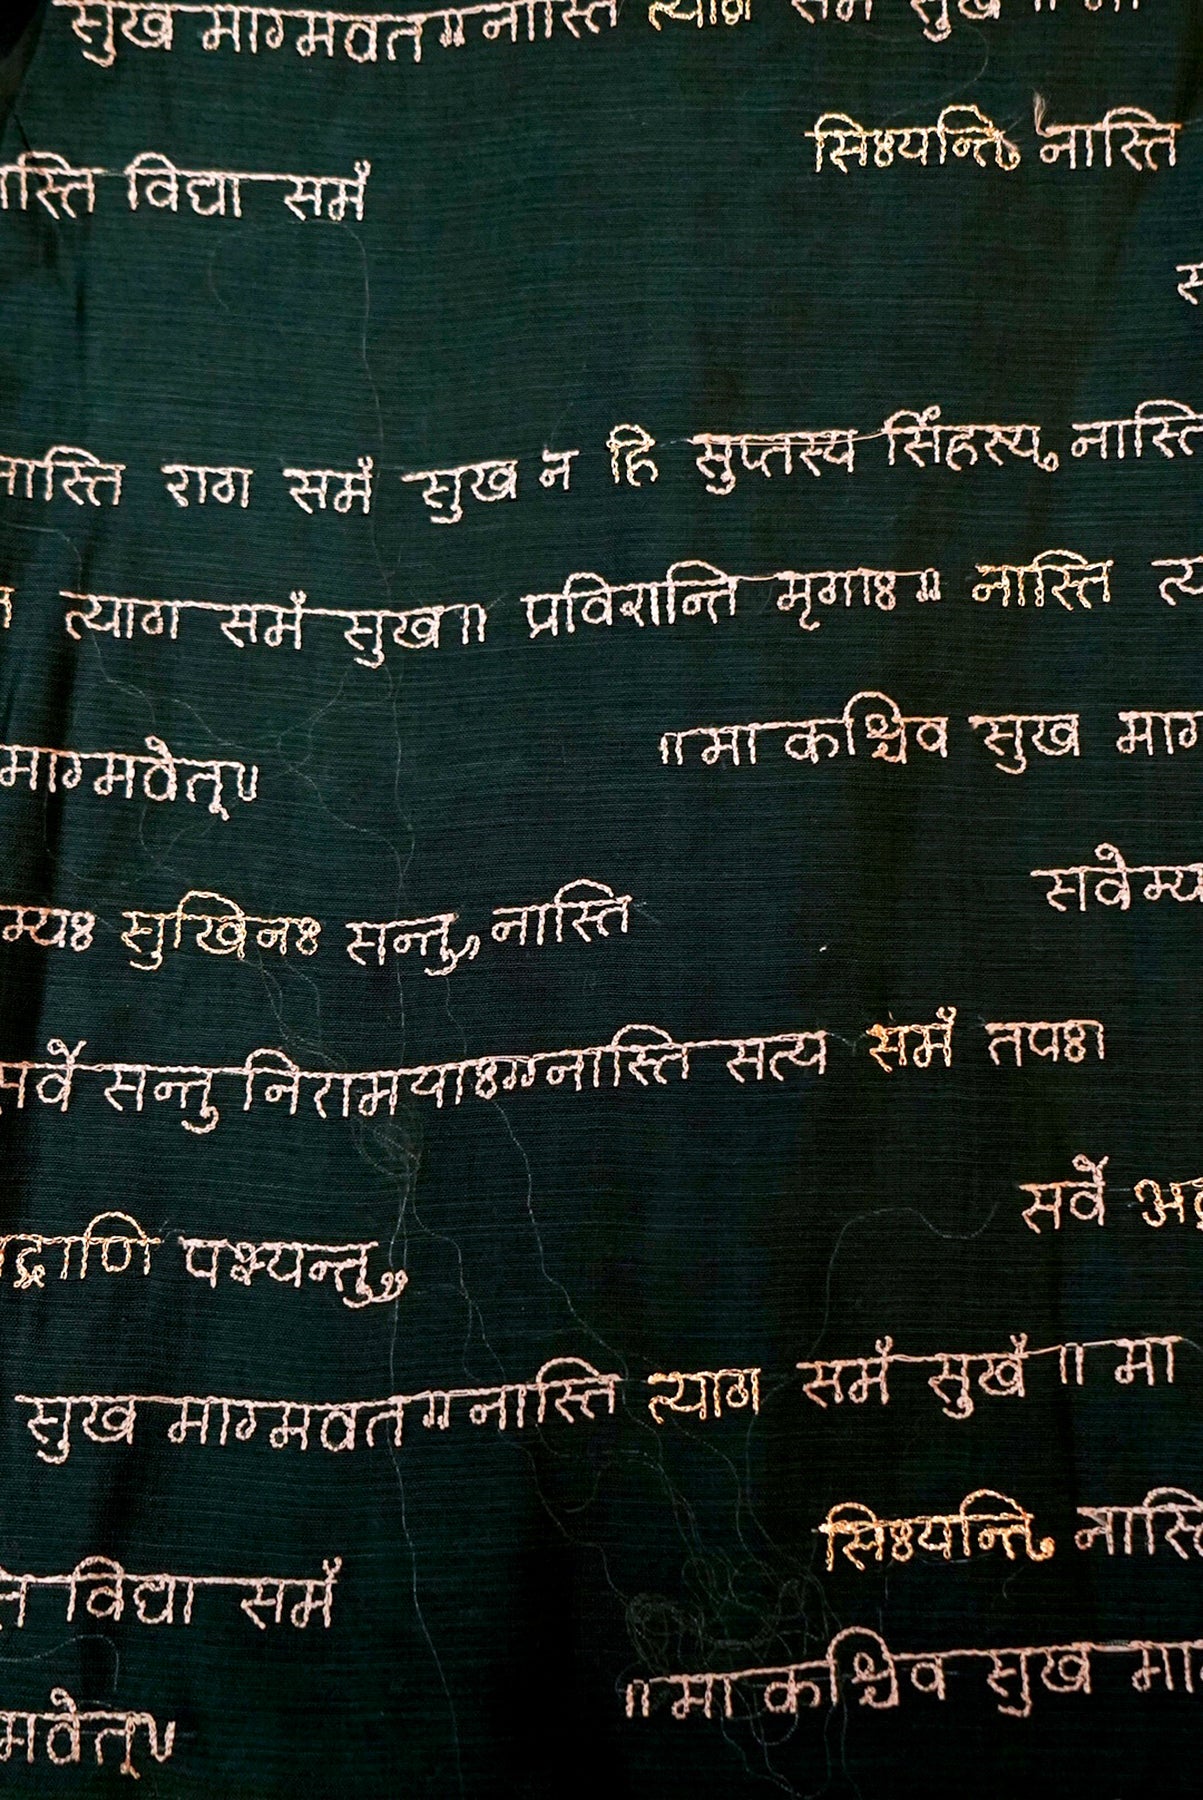 सुख माग्मवत॥नास्ति त्याग समं सुख॥ मा
सिष्यन्ति, नास्ति
ास्ति विद्या समं
नास्ति राग समं सुख न हि सुप्तस्य सिंहस्य, नास्ति
त्याग समं सुख॥ प्रविशन्ति मृगाः॥ नास्ति त्य
माग्मवेत्॥
॥मा कश्चिव सुख माग
सवेम्य
म्यः सुखिनः सन्तु,, नास्ति
सर्वे सन्तु निरामयाः॥नास्ति सत्य समं तपः।
सर्वे भद्र
द्राणि पश्यन्तु,,
सुख माग्मवत॥नास्ति त्याग समं सुखं ॥ मा
सिष्यन्ति, नास्ति
विद्या समं
॥मा कश्चिव सुख माग
मवेत्॥